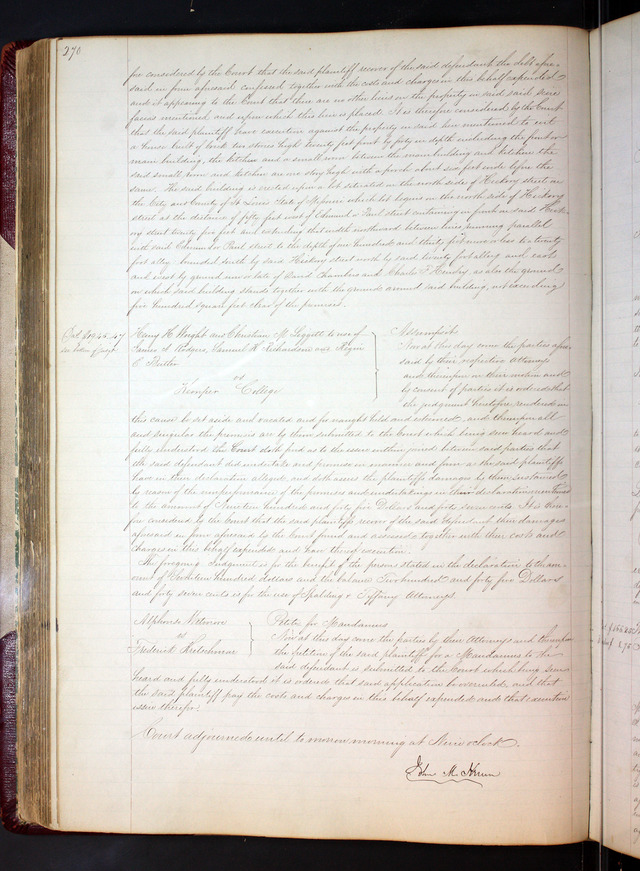 270
fore considered by the Court that the said plaintiff recover of the said defendant the debt afore-
said in form aforesaid confessed together with the costs and charges in this behalf expended
and it appearing to the Court that there are no other liens on the property in said said Scire
facias mentioned and upon which this lien is placed. It is therefore considered by the Court
that the said plaintiff have execution against the property in said lien mentioned to wit
a house built of brick two stories high twenty feet front by fifty in depth including the
main building, the kitchen and a small room between the main building and kitchen the
said small room and kitchen are one story high with a porch about six feet wide before the
same. The said building is erected upon a lot situated on the north side of Hickory street in
the City and County of St Louis State of Missouri which lot begins on the north side of Hickory
street at the distance of fifty feet west of street containing in front on said Hick-
ory street twenty five feet and extending that width northward between lines running parallel
with said street to the depth of one hundred and thirty five more or less to a twenty
foot alley bounded south by said Hickory street north by said twenty foot alley and east
and west by ground now or late of David Chambers and Charles F. Hendry as also the ground
on which said building stands together with the grounds around said building, not exceeding
five hundred square feet clear of the premises.
Harry H. Wright and Christian M. Leggett to use of
James A. Rodgers, Samuel R. Richardson and
C. Butler
vs
Kemper College
Assumpsit
Now at this day come the parties afore-
said by their respective Attorneys
and thereupon on their motion and
by consent of parties it is ordered that
the judgment heretofore rendered in
this cause be set aside and vacated and for naught held and esteemed and thereupon all
and singular the premises are by them submitted to the Court which being seen heard and
fully understood the Court doth find as to the issue within joined between said parties that
the said defendant did undertake and promise in manner and form as the said plaintiffs
have in their declaration alleged and doth assess the plaintiffs damages by them sustained
by reason of the non performance of the promises and undertakings in their declaration mentioned
to the amount of hundred and forty five Dollars and forty seven cents. It is there-
fore considered by the Court that the said plaintiffs recover of the said defendant their damages
aforesaid in form aforesaid by the Court found and assessed together with their costs and
charges in this behalf expended and have thereof execution.
The foregoing Judgment is for the benefit of the persons stated in the declaration to the am-
ount of hundred dollars and the balance Two hundred and forty five Dollars
and forty seven cents is for the use of Spalding & Tiffany Attorneys.
Alphonse
vs
Frederick Kretschmar
Petition for Mandamus
Now at this day come the parties by their Attorneys and thereupon
the petition of the said plaintiff for a Mandamus to the
said defendant is submitted to the Court which being seen
heard and fully understood it is ordered that said application be overruled and that
the said plaintiff pay the costs and charges in this behalf expended and that execution
issue therefor.
Court adjourned until to morrow morning at Nine o'clock.
John M. Krum